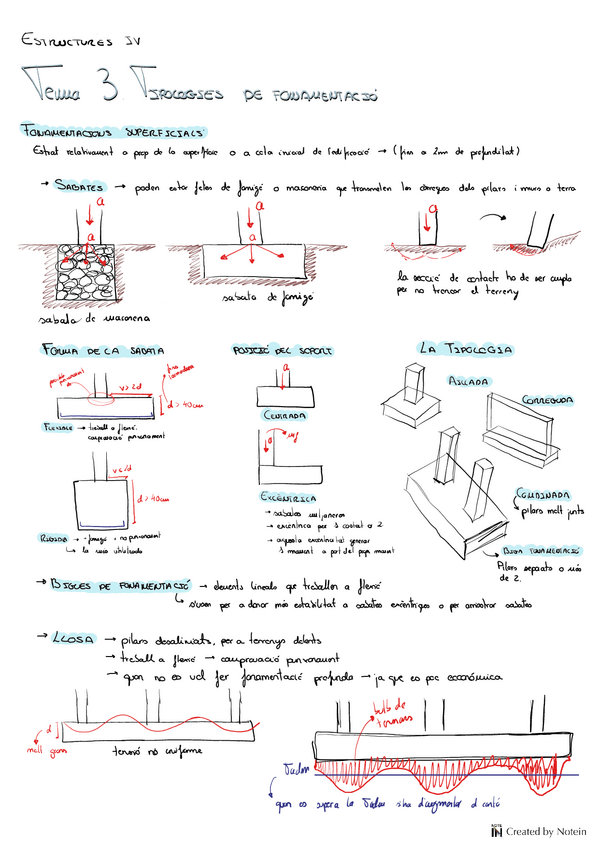 ESTRUCTURES IV
Tema 3 TIPOLOGIES DE FONAMENTACIÓ
FONAMENTACIONS SUPERFICIALS
Estrat relativament a prop de la superfície o a cota inicial de l'edificació → (fins a 2m de profunditat)
→ SABATES → poden estar fetes de formigó o maçoneria que transmeten les càrregues dels pilars i murs a terra
a
a
a
a
sabata de maçoneria
sabata de formigó
la secció de contacte ha de ser amplia
per no trencar el terreny
FORMA DE LA SABATA
v > 2d
d > 40cm
FLEXIBLE → treball a flexió.
comprovació punxonament
v < 2d
d > 40cm
RÍGIDA → - formigó, no punxonament
↳ la més utilitzada
POSICIÓ DEL SOPORT
a
CENTRADA
EXCÈNTRICA
→ sabates mitjaneres
→ excèntrica per 1 costat o 2
→ aquesta excentricitat genera
1 moment a part del propi moment
LA TIPOLOGIA
AÏLLADA
CORREGUDA
COMBINADA
pilars molt junts
BIGA FONAMENTACIÓ
Pilars separats o més
de 2.
→ BIGUES DE FONAMENTACIÓ → elements lineals que treballen a flexió
↳ s'usen per a donar més estabilitat a sabates excèntriques o per arriostrar sabates
→ LLOSA → pilars desalineats, per a terrenys dolents
→ treball a flexió → comprovació punxonament
→ quan no es vol fer fonamentació profunda → ja que es poc econòmica
d
molt gran
tensió no uniforme
bulb de
tensions
σadm
quan es supera la σadm s'ha d'augmentar el cantó
NOTE IN Created by Notein